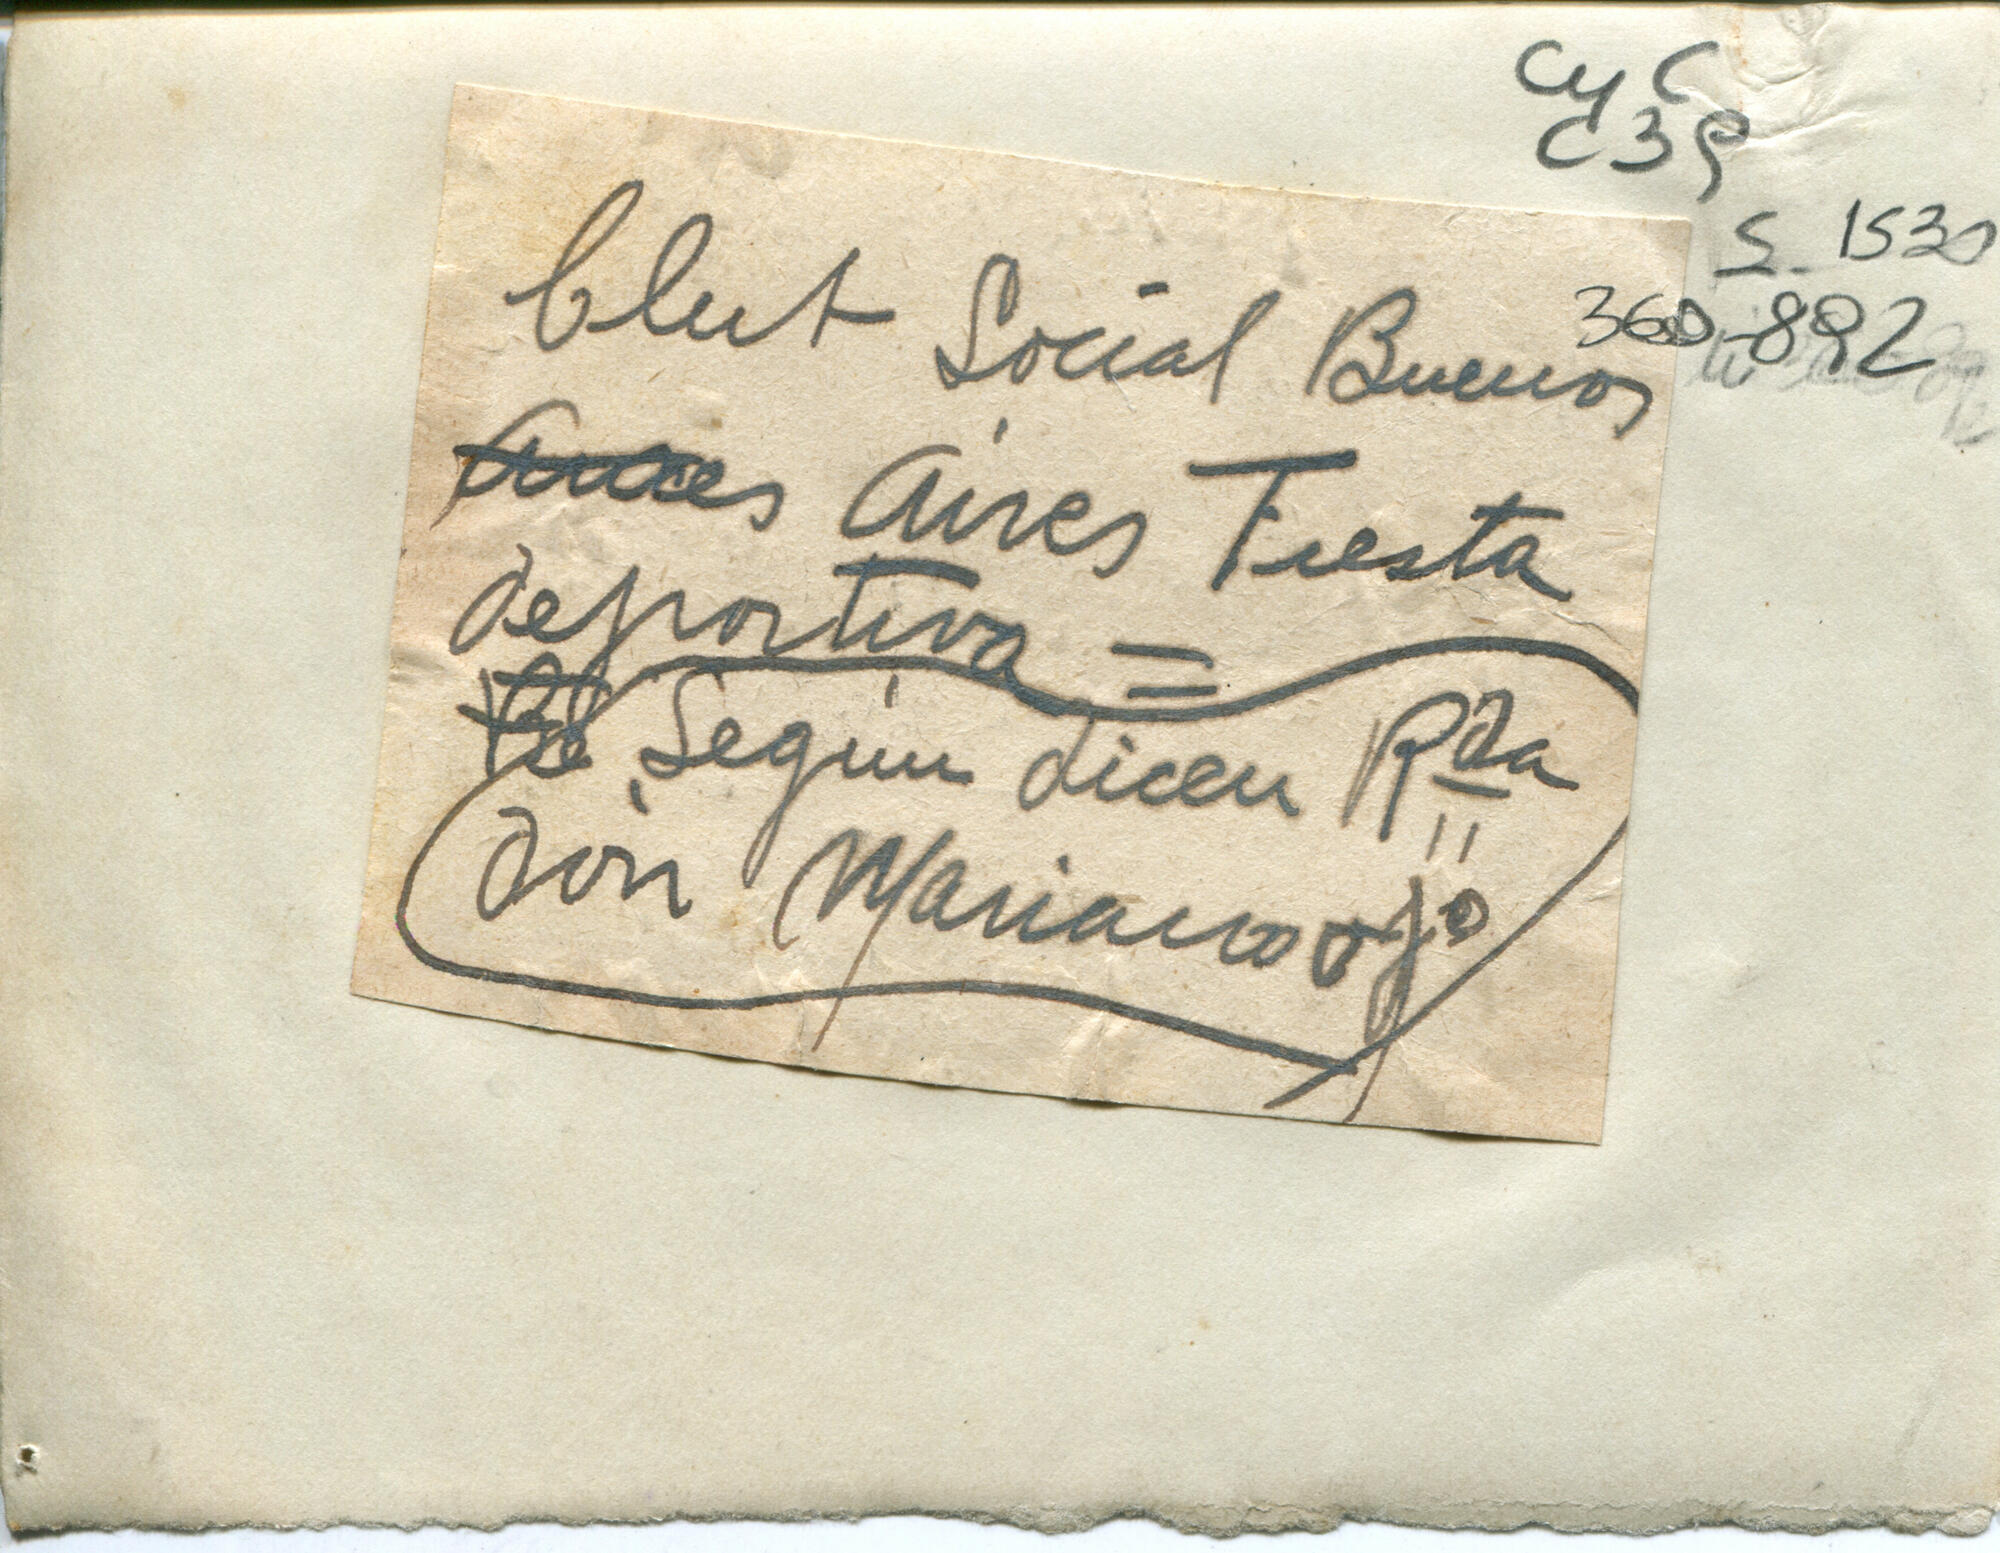 CyC
C39
S. 1530
360-892
Club Social Buenos
Aires Fiesta
deportiva =
Según dicen Rda
don Mariano